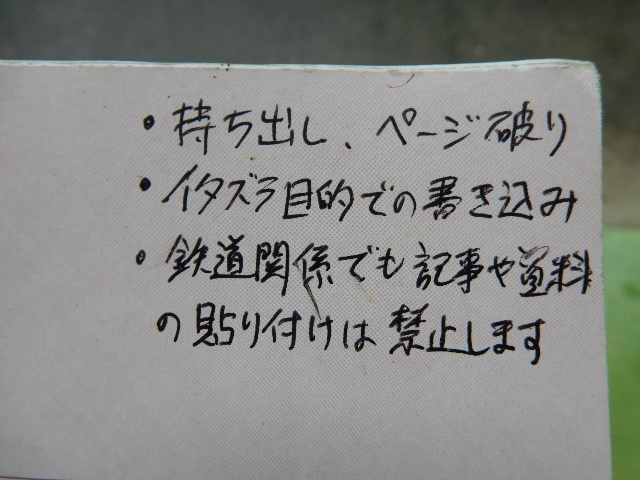 ・持ち出し、ページ破り
・イタズラ目的での書き込み
・鉄道関係でも記事や資料
の貼り付けは禁止します